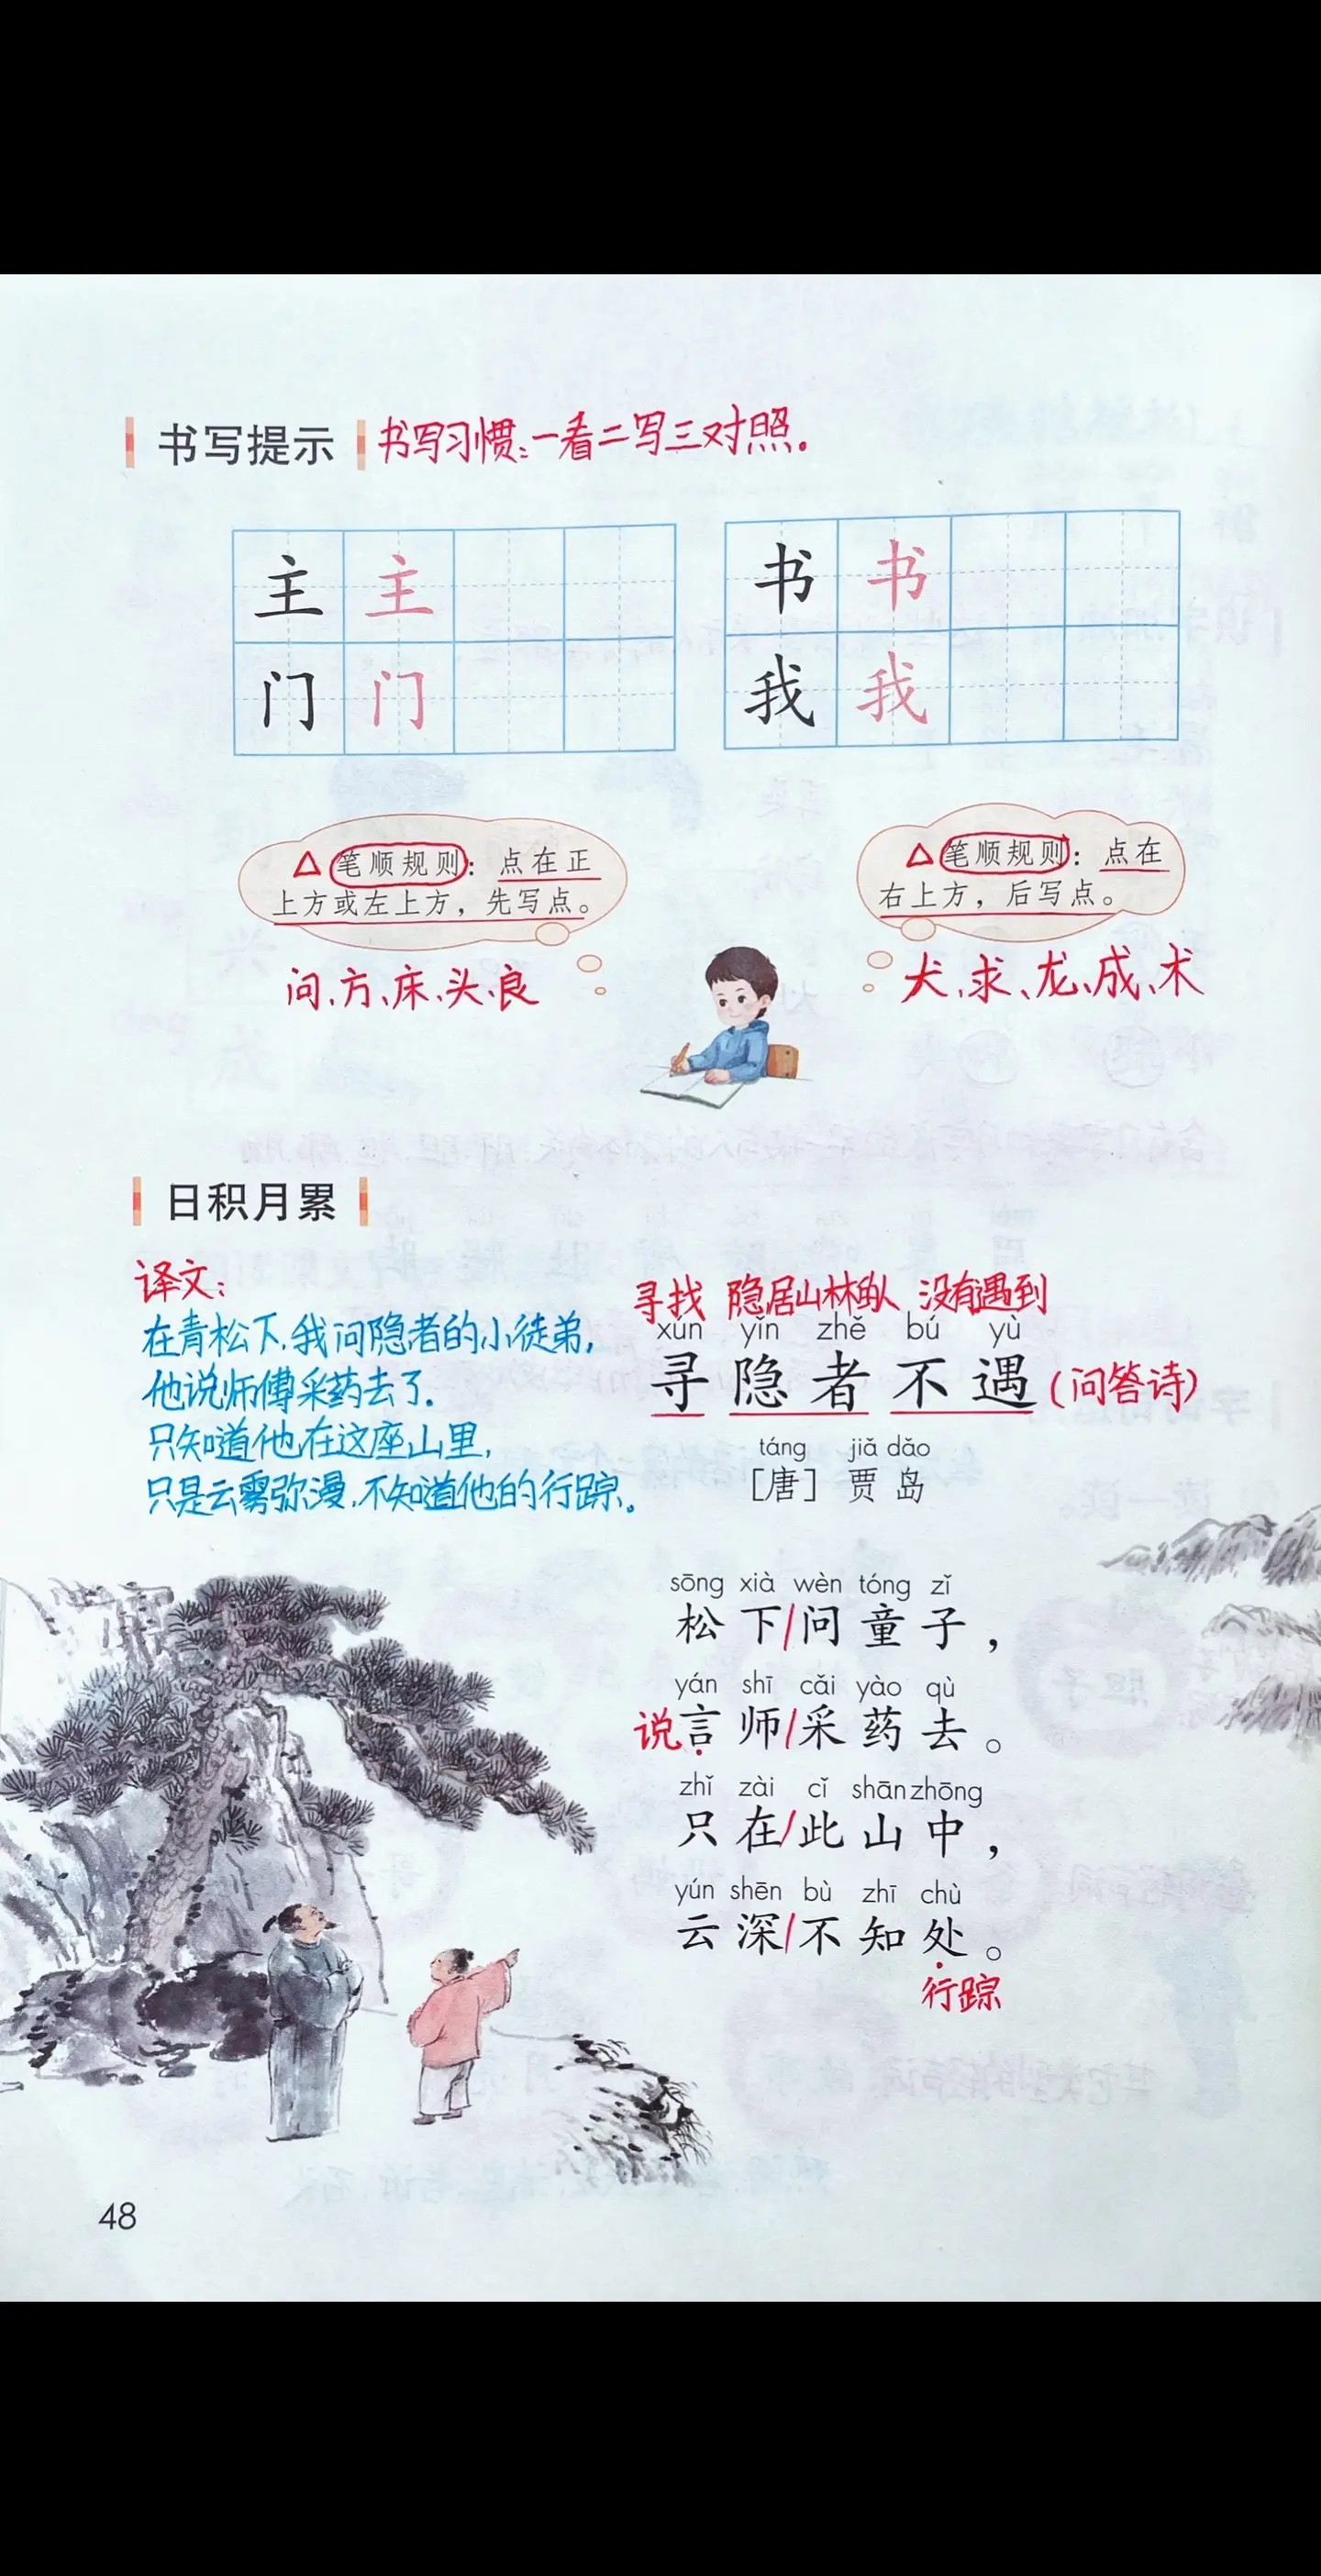 书写提示 书写习惯:一看二写三对照。
主 主 书 书
门 门 我 我
△笔顺规则：点在正
上方或左上方，先写点。
问、方、床、头、良
△笔顺规则：点在
右上方，后写点。
犬、求、龙、成、术
日积月累
译文:
在青松下,我问隐者的小徒弟,
他说师傅采药去了.
只知道他在这座山里,
只是云雾弥漫,不知道他的行踪。
寻找 隐居山林的人 没有遇到
xún yǐn zhě bú yù
寻隐者不遇(问答诗)
táng jiǎ dǎo
［唐］贾岛
sōng xià wèn tóng zǐ
松下/问童子，
yán shī cǎi yào qù
说言师/采药去。
zhǐ zài cǐ shān zhōng
只在/此山中，
yún shēn bù zhī chù
云深/不知处。
行踪
48